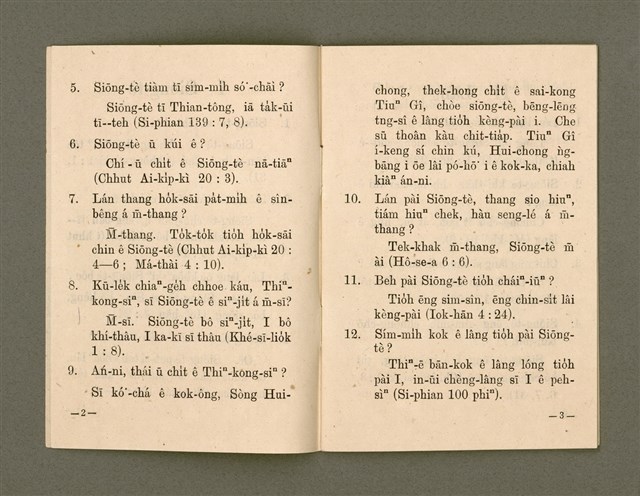 5. Siōng-tè tiàm tī sím-mi̍h só͘-chāi?
Siōng-tè tī Thian-tông, iā ta̍k-ūi
tī--teh (Si-phian 139 : 7, 8).
6. Siōng-tè ū kúi ê?
Chí-ū chi̍t ê Siōng-tè nā-tiāⁿ
(Chhut Ai-ki̍p-kì 20 : 3).
7. Lán thang ho̍k-sāi pa̍t-mi̍h ê sîn-
bêng á m̄-thang?
M̄-thang. To̍k-to̍k tio̍h ho̍k-sāi
chin ê Siōng-tè (Chhut Ai-ki̍p-kì 20 :
4—6; Má-thài 4 : 10).
8. Kū-le̍k chiaⁿ-ge̍h chhoe káu, Thiⁿ-
kong-siⁿ, sī Siōng-tè ê siⁿ-ji̍t á m̄-sī?
M̄-sī. Siōng-tè bô siⁿ-ji̍t, I bô
khí-thâu, I ka-kī sī thâu (Khé-sī-lio̍k
1 : 8).
9. Ań-ni, thái ū chi̍t ê Thiⁿ-kong-siⁿ?
Sī kó͘-chá ê kok-ông, Sòng Hui-
—2—
chong, thek-hong chi̍t ê sai-kong
Tiuⁿ Gî, chòe siōng-tè, bēng-lēng
tng-si ê lâng tio̍h kèng-pài i. Che
sū thoân kàu chit-tia̍p. Tiuⁿ Gî
í-keng sí chin kú, Hui-chong ǹg-
bāng i ōe lâi pó-hō͘ i ê kok-ka, chiah
kiâⁿ án-ni.
10. Lán pài Siōng-tè, thang sio hiuⁿ,
tiám hiuⁿ chek, hàu seng-lé á m̄-
thang?
Tek-khak m̄-thang, Siōng-tè m̄
ài (Hô-se-a 6 : 6).
11. Beh pài Siōng-tè tio̍h cháiⁿ-iūⁿ?
Tio̍h ēng sim-sîn, ēng chin-si̍t lâi
kèng-pài (Iok-hān 4 : 24).
12. Sím-mi̍h kok ê lâng tio̍h pài Siōng-
tè?
Thiⁿ-ē bān-kok ê lâng lóng tio̍h
pài I, in-ūi chèng-lâng sī I ê peh-
sìⁿ (Si-phian 100 phiⁿ).
—3—